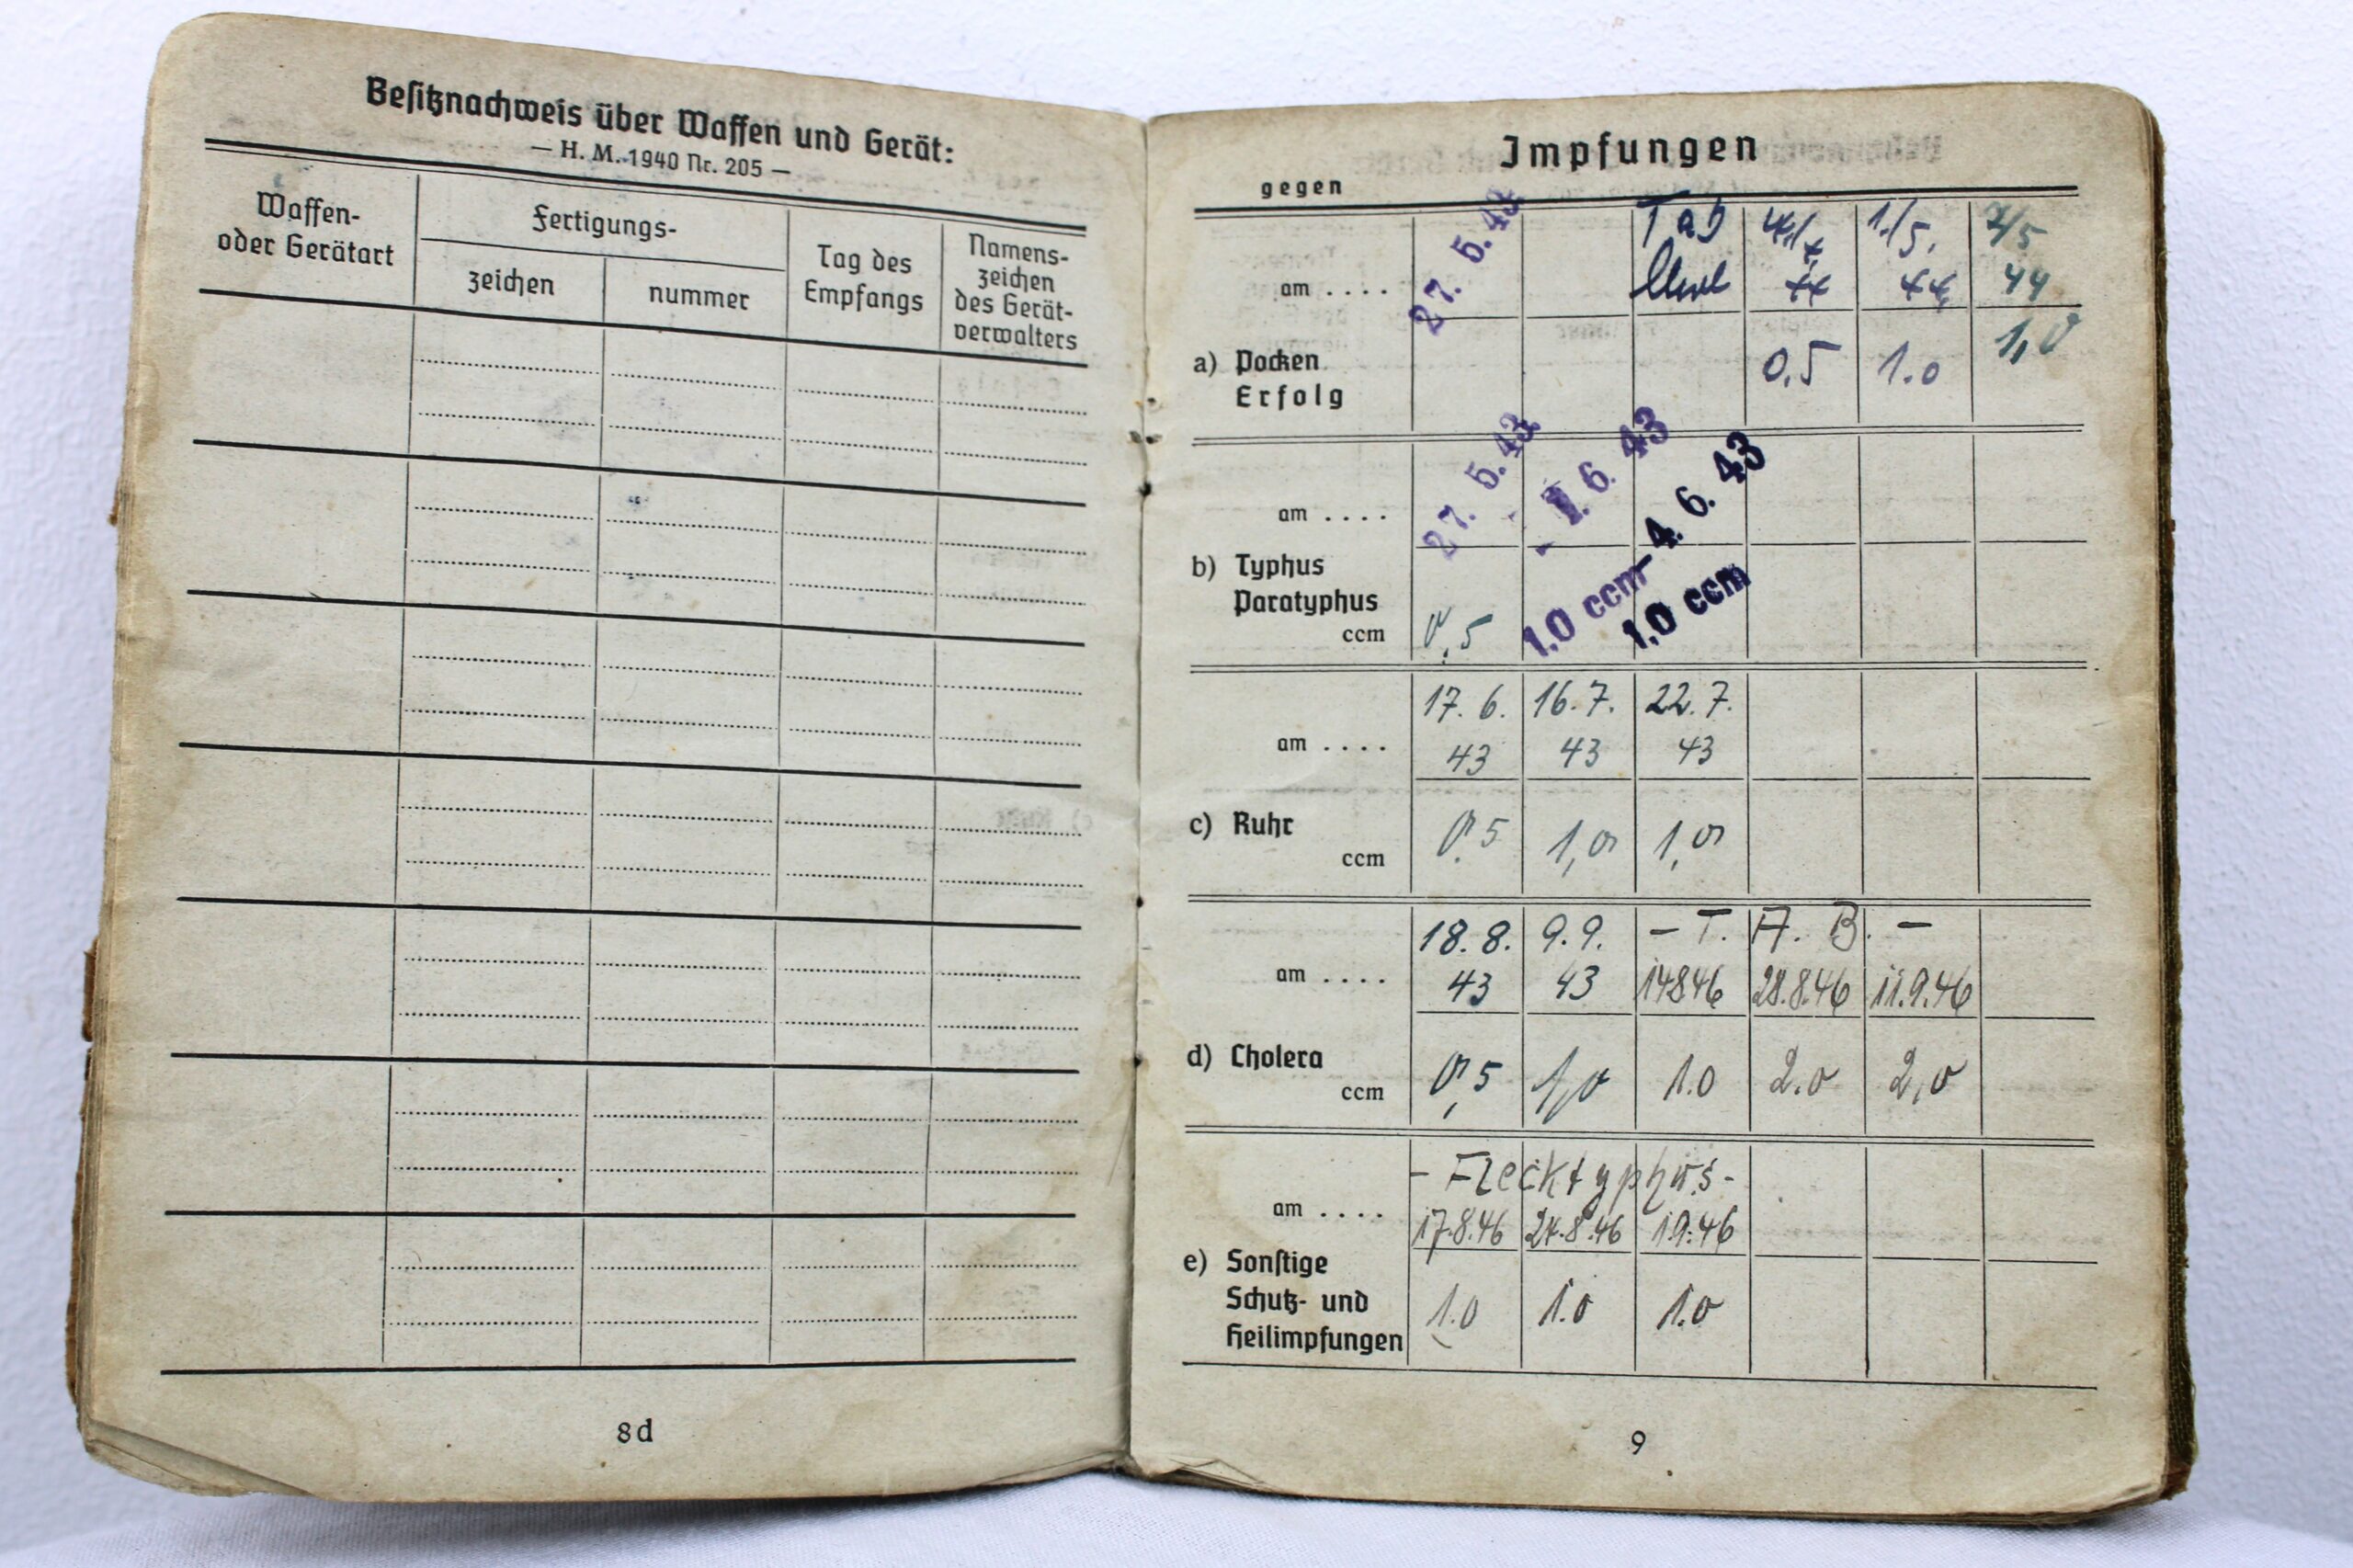 Besitznachweis über Waffen und Gerät:
— H. M. 1940 Nr. 205 —
Waffen-
oder Gerätart
Fertigungs-
zeichen
nummer
Tag des
Empfangs
Namens-
zeichen
des Gerät-
verwalters
8d
Impfungen
gegen
am . . . .
27. 5. 43
7/5
1./5.
44
a) Pocken
Erfolg
0,5 1.0 1,0
am . . . .
27. 5. 43 - 1. 6. 43 - 4. 6. 43
b) Typhus
Paratyphus
ccm
0,5 1,0 ccm 1,0 ccm
17. 6. 16. 7. 22. 7.
am . . . . 43 43 43
c) Ruhr
ccm 0,5 1,0 1,0
18. 8. 9. 9. – T. A. B. –
am . . . . 43 43 14846 28.8.46 11.9.46
d) Cholera
ccm 0,5 1,0 1.0 2.0 2,0
- Flecktyphus -
am . . . . 17.8.46 24.8.46 1.9.46
e) Sonstige
Schutz- und
Heilimpfungen
1.0 1.0 1.0
9